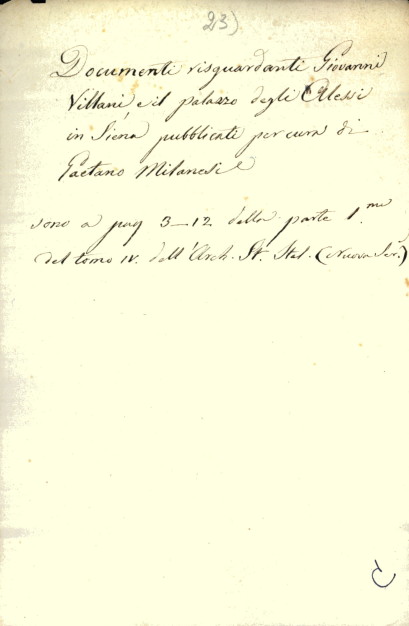 23)
Documenti risguardanti Giovanni
Villani e il palazzo degli Alessi
in Siena pubblicati per cura di
Gaetano Milanesi
sono a pag 3–12 della parte 1.ma
del tomo IV. dell'Arch. St. Ital. (Nuova Ser.)